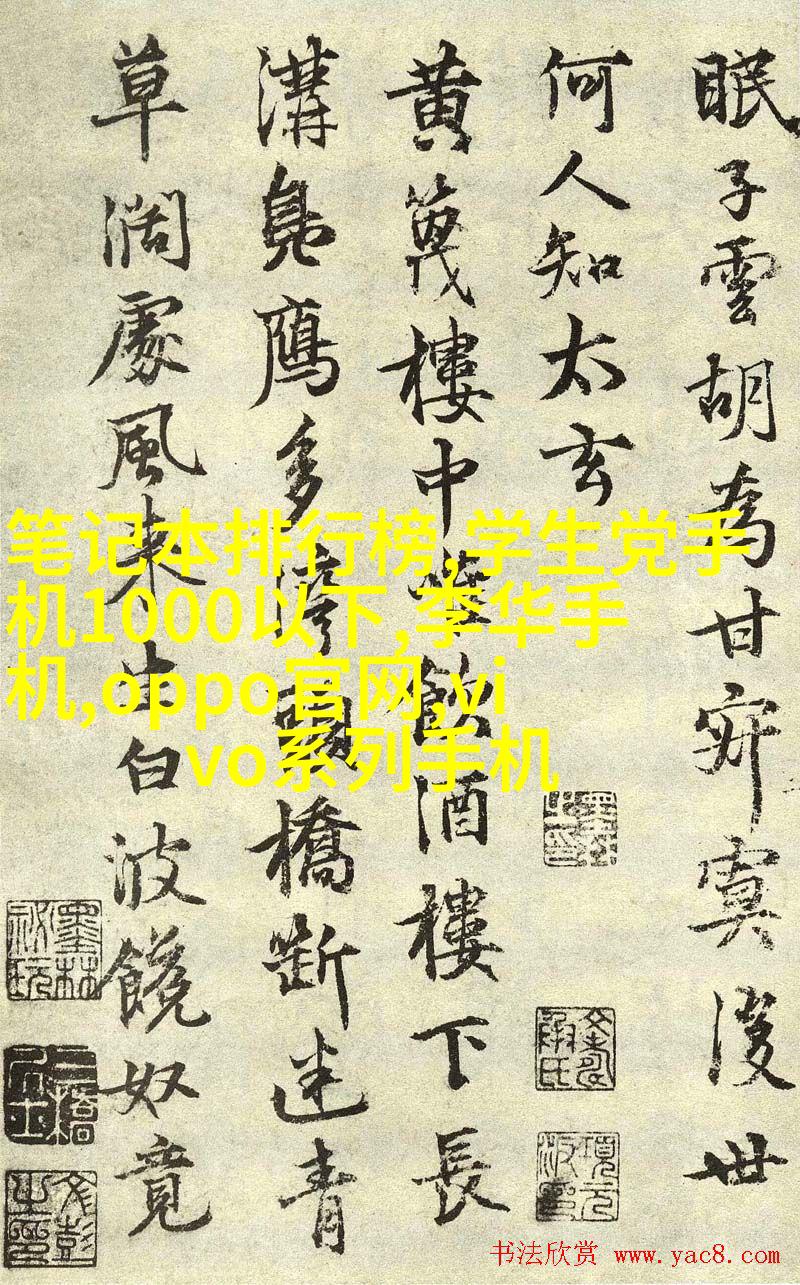 眠子雲胡為甘寂寞後世
何人知太玄
黄篾樓中飲酒樓下長
溝凫鷹多灣橋斷迷青
草濶處風来生白波饒奴竟
笔记本排行榜,学生党手
机1000以下,李华手
机,oppo官网,vi
vo系列手机
书法欣赏 www.yac8.com